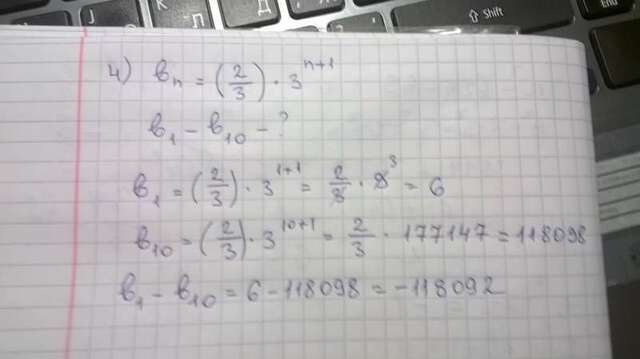 Shift
End
4) bₙ = (2/3) · 3ⁿ⁺¹
b₁ − b₁₀ − ?
b₁ = (2/3) · 3¹⁺¹ = 2/3 · 9³ = 6
b₁₀ = (2/3) · 3¹⁰⁺¹ = 2/3 · 177147 = 118098
b₁ − b₁₀ = 6 − 118098 = −118092